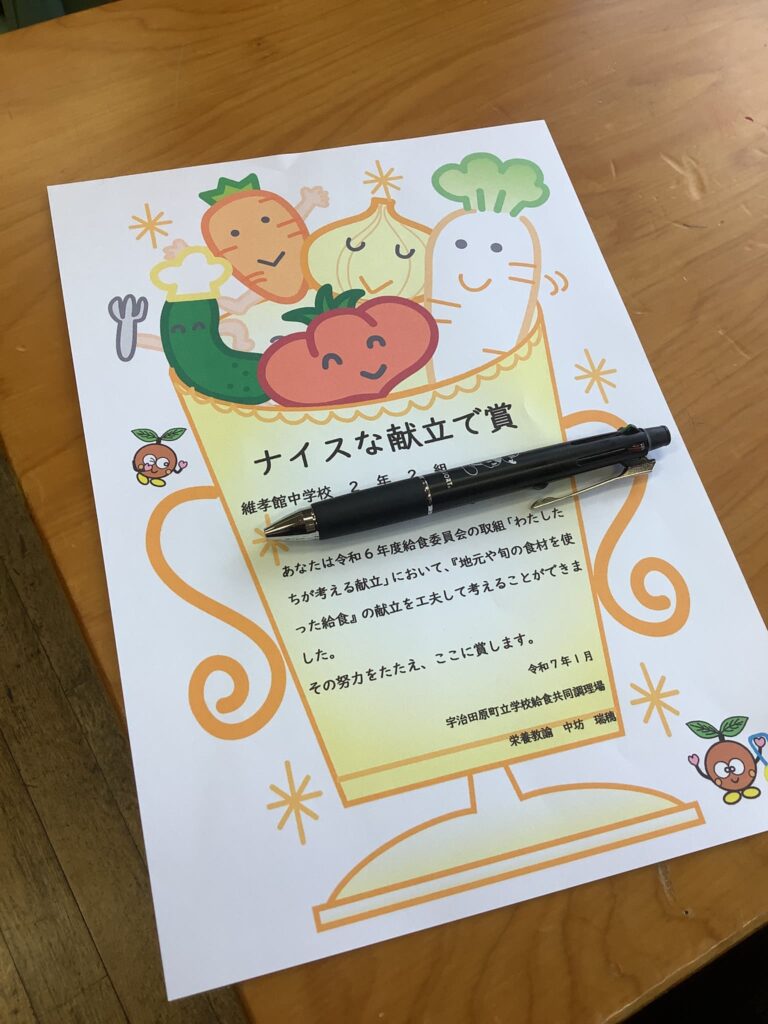 ナイスな献立で賞
維孝館中学校 2 年 2 組
あなたは令和6年度給食委員会の取組「わたした
ちが考える献立」において、『地元や旬の食材を使
った給食』の献立を工夫して考えることができま
した。
その努力をたたえ、ここに賞します。
令和7年1月
宇治田原町立学校給食共同調理場
栄養教諭 中坊 瑞穂